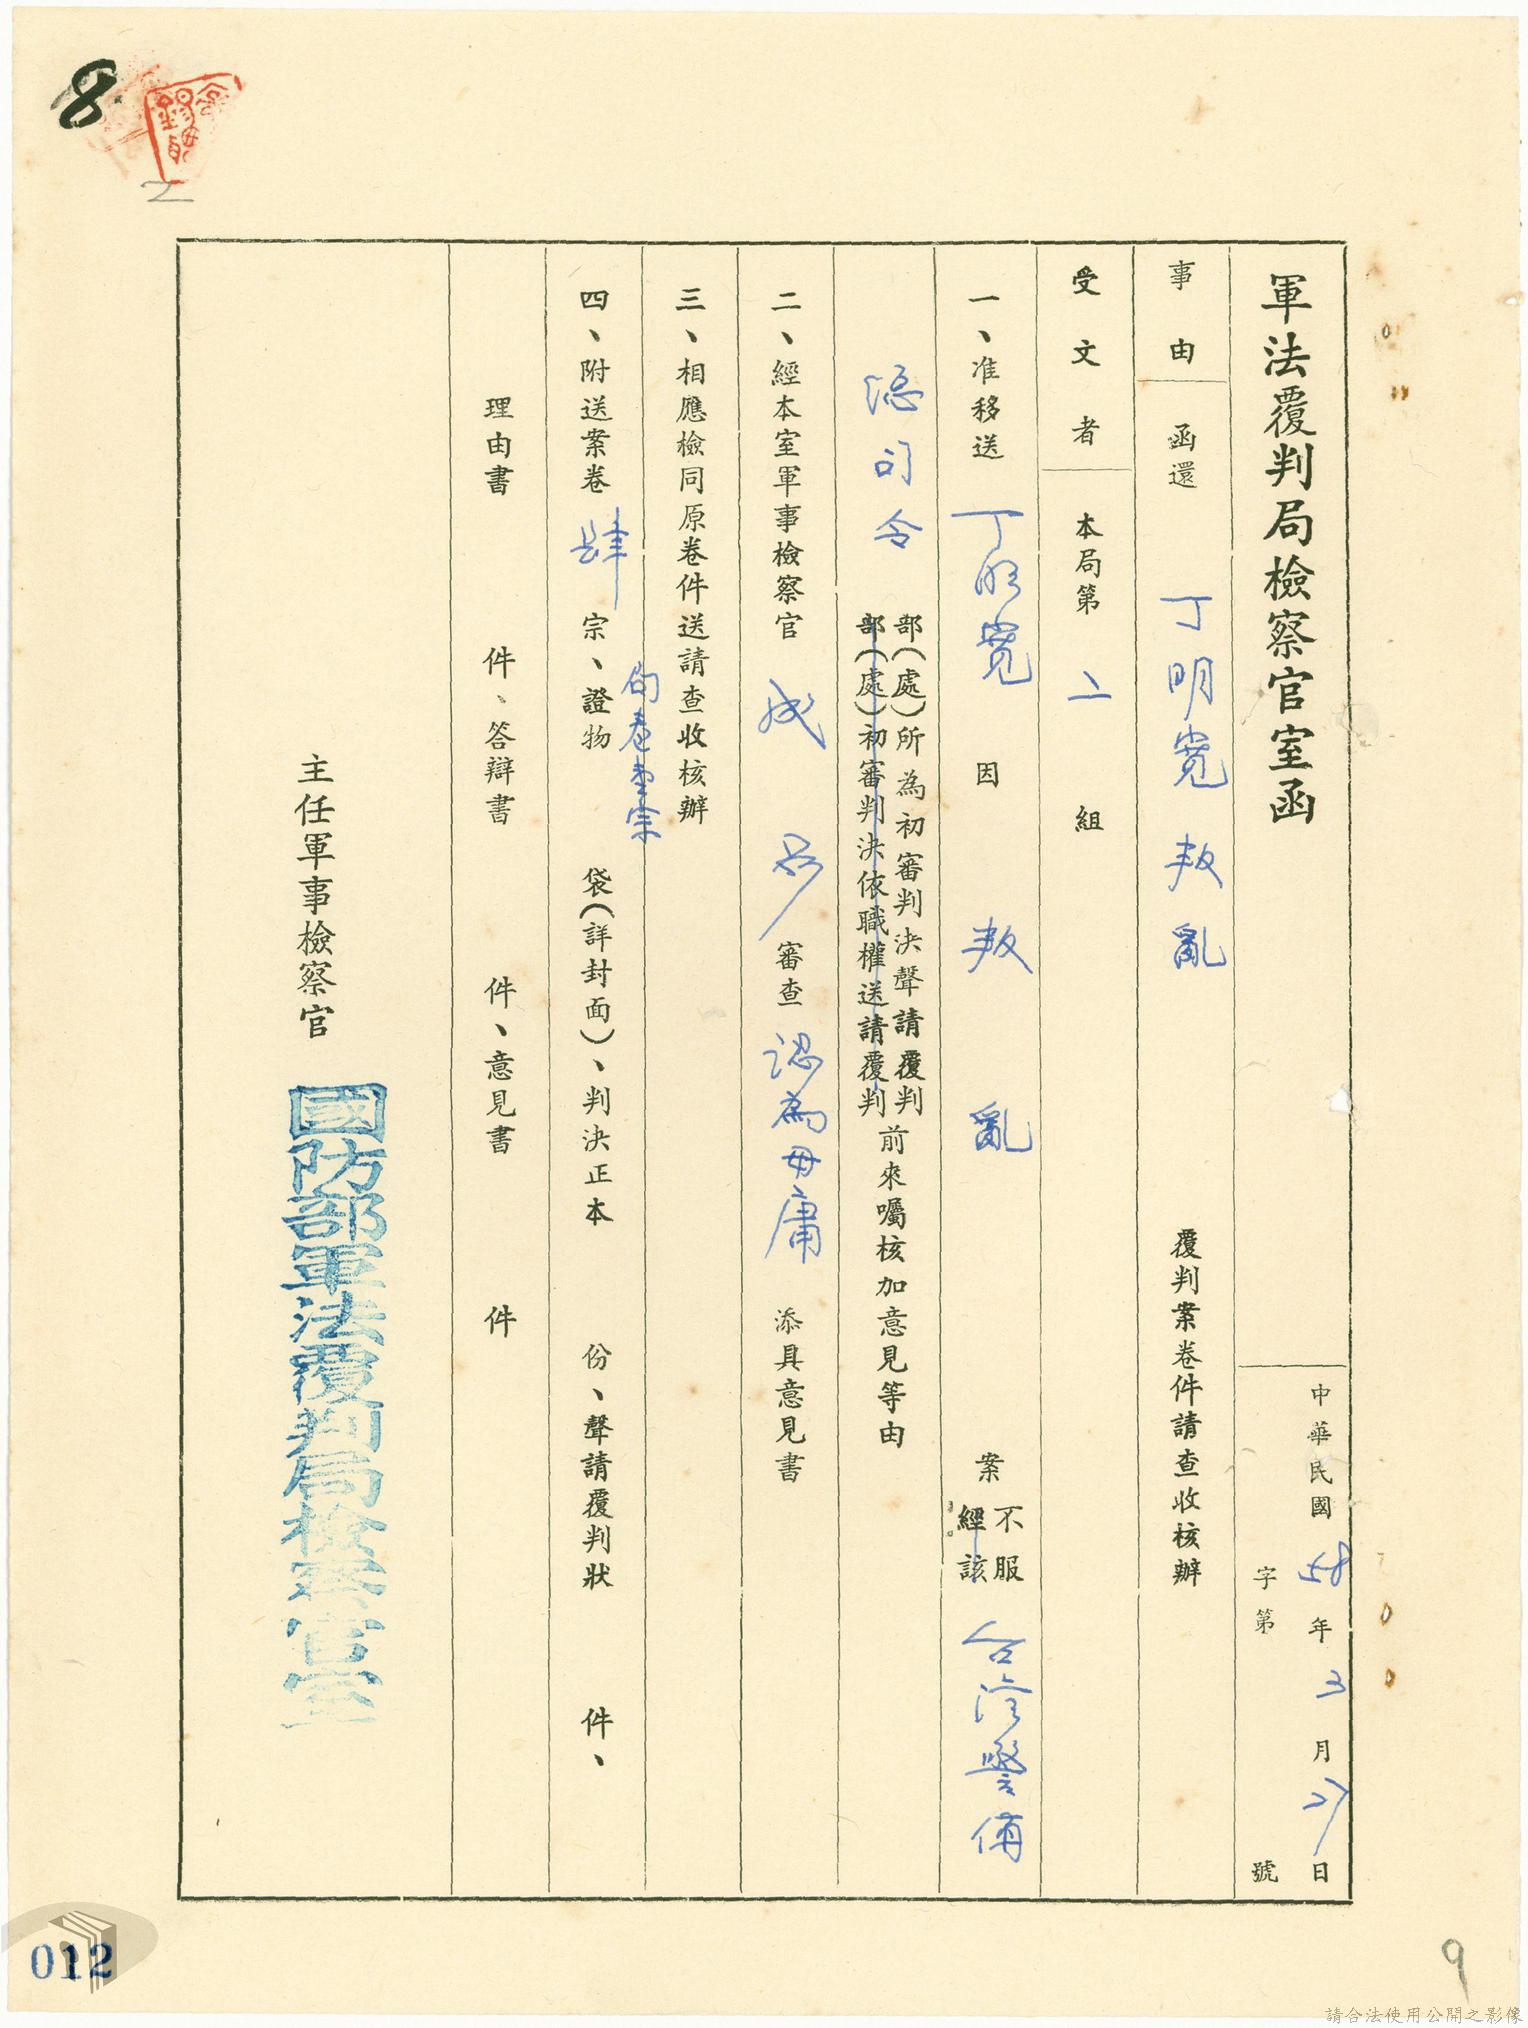 軍法覆判局檢察官室函
中華民國58年3月27日
字第 號
事由 函還 丁明寬叛亂 覆判案卷件請查收核辦
受文者 本局第二組
一、准移送 丁明寬 因 叛亂 案 不服
經該
台灣警備
總司令 部(處)所為初審判決聲請覆判
部(處)初審判決依職權送請覆判
前來囑核加意見等由
二、經本室軍事檢察官 成 審查 認為毋庸 添具意見書
三、相應檢同原卷件送請查收核辦
四、附送案卷 肆 宗、證物 袋(詳封面)、判決正本 份、聲請覆判狀 件、
卷壹宗
理由書 件、答辯書 件、意見書 件
主任軍事檢察官
國防部軍法覆判局檢察官室
8
2
012
9
請合法使用公開之影像